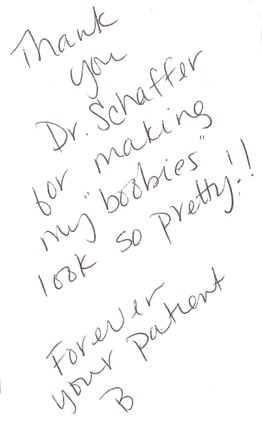 Thank
you
Dr. Schaffer
for making
my "boobies"
look so pretty!!
Forever
your patient
B